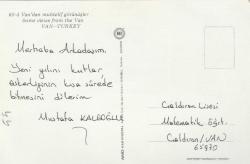 65-2 Van'dan muhtelif görünüşler
Some views from the Van
VAN-TURKEY
Merhaba Arkadaşım,
Yeni yılını kutlar
askerliğinin kısa sürede
bitmesini dilerim
Mustafa
Çaldıran Lisesi
Matematik Öğrt.
Çaldıran/VAN
65970